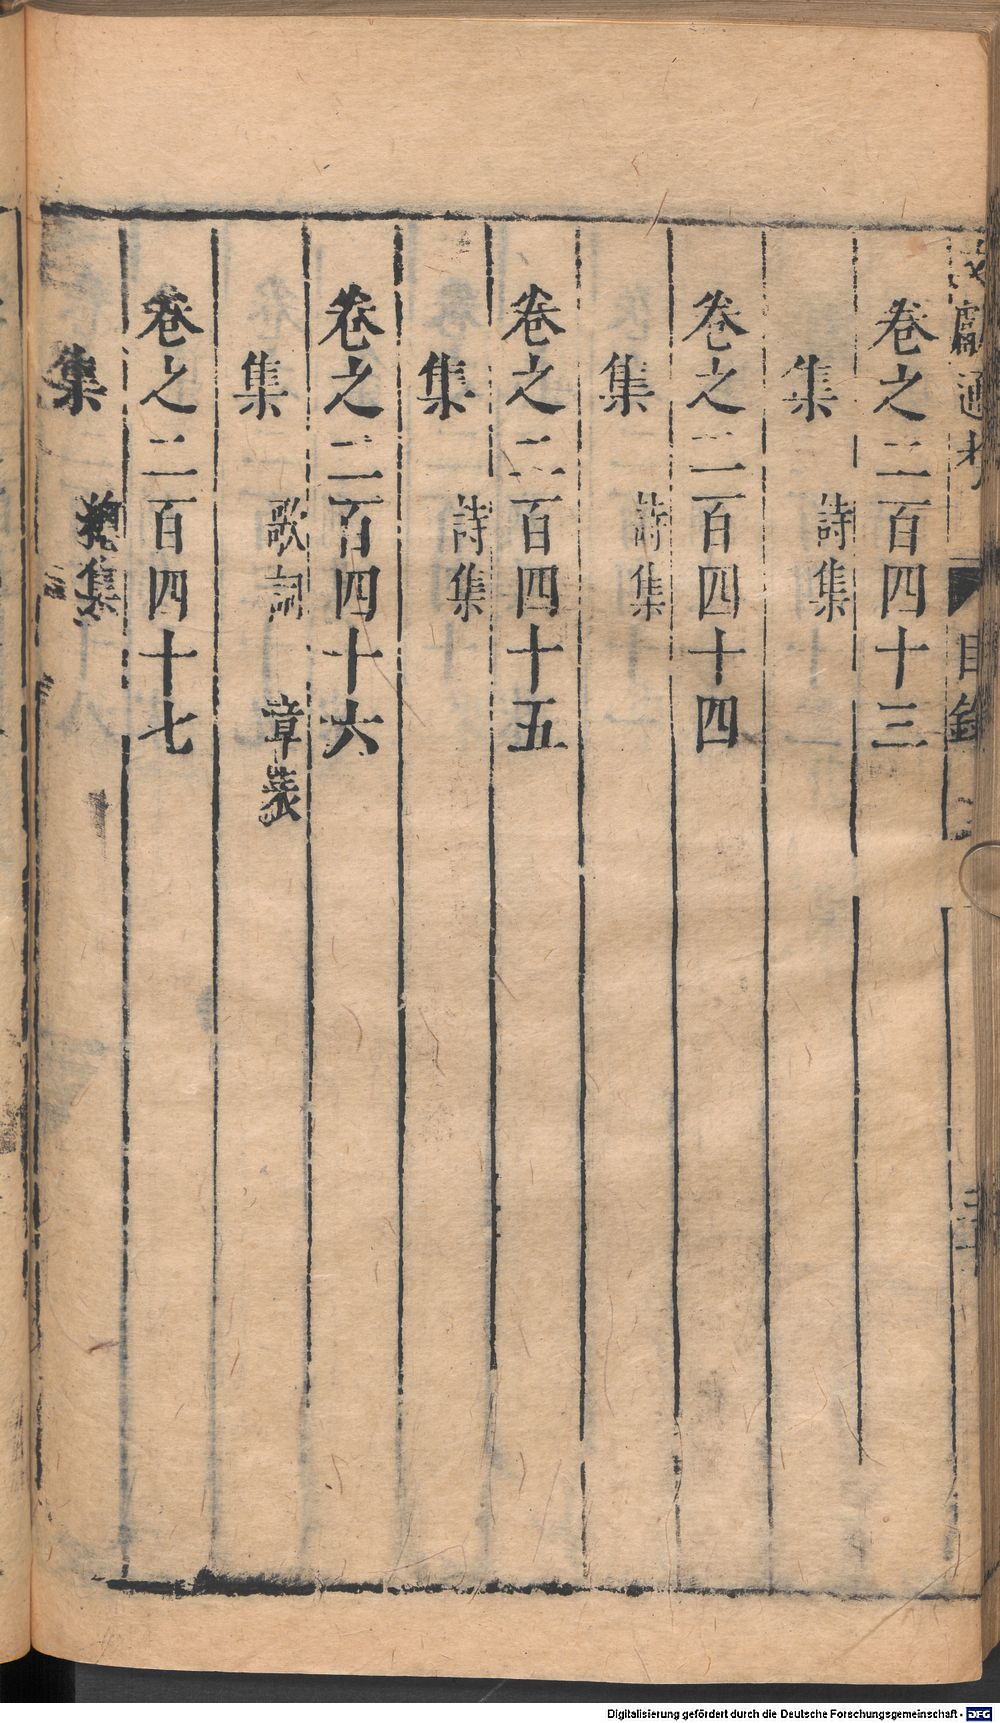 文獻通考 目錄
卷之二百四十三
集 詩集
卷之二百四十四
集 詩集
卷之二百四十五
集 詩集
卷之二百四十六
集 歌詞 章表
卷之二百四十七
集 總集
Digitalisierung gefördert durch die Deutsche Forschungsgemeinschaft - DFG